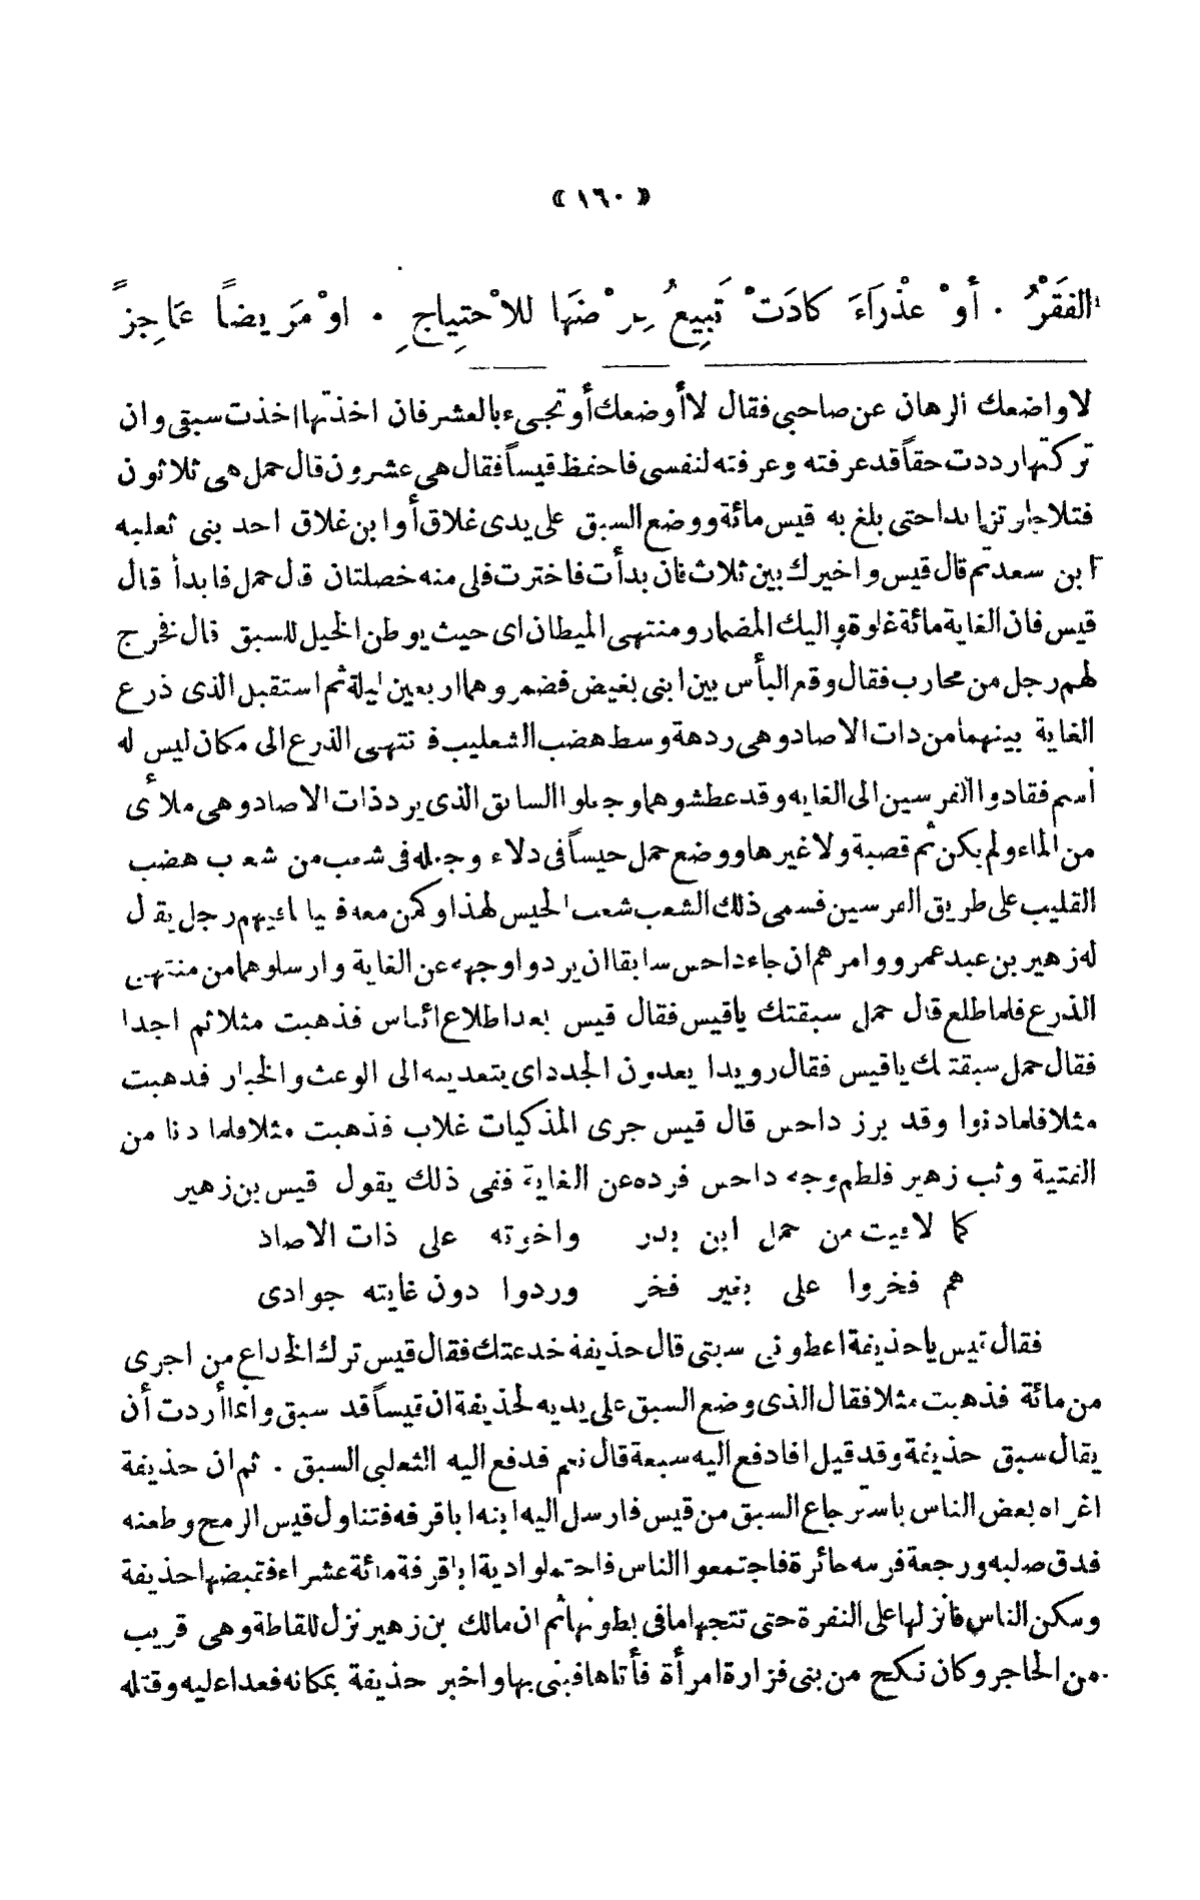 ﴿ ١٦٠ ﴾
الفَقَرُ . أَوْ عذْرَاءَ كادَتْ تَبِيعُ عِرْضَهَا للاْحْتِياجِ . اوْ مَريضاً عَاجِزً
لاواضعك الرهان عن صاحبى فقال لاأوضعك أوتجىء بالعشر فان اخذتها اخذت سبقى وان
تركتها رددت حقاً قد عرفته وعرفته لنفسى فاحفظ قيساً فقال هى عشرون قال حمل هى ثلاثون
فتلاجا وتزايدا حتى بلغ به قيس مائة ووضع السبق على يدى غلاق أوابن غلاق احد بنى ثعلبه
ابن سعد ثم قال قيس واخيرك بين ثلاث فان بدأت فاخترت فلى منه خصلتان قال حمل فابدأ قال
قيس فان الغاية مائة غلوة واليك المضمار ومنتهى الميطان اى حيث يوطن الخيل للسبق قال فخرج
لهم رجل من محارب فقال وقع البأس بين ابنى بغيض فضمروهما اربعين ليلة ثم استقبل الذى ذرع
الغاية بينهما من ذات الاصاد وهى ردهة وسط هضب الشعليب فانتهى الذرع الى مكان ليس له
أسم فقادوا الفرسين الى الغايه وقد عطشوهما وجعلوا السابق الذى يرد ذات الاصاد وهى ملأى
من الماء ولم يكن ثم قصبة ولا غيرها ووضع حمل حيساً فى دلاء وجعله فى شعب من شعاب هضب
القليب على طريق الفرسين فسمى ذلك الشعب شعب الحيس لهذا وكمن معه فتيانا فيهم رجل يقال
له زهير بن عبد عمرو وامرهم ان جاء داحس سابقا ان يردوا وجهه عن الغاية وارسلوهما من منتهى
الذرع فلما طلع قال حمل سبقتك ياقيس فقال قيس بعد اطلاع ائناس فذهبت مثلا ثم اجدا
فقال حمل سبقتك ياقيس فقال رويدا يعدون الجدد اى يتعدينه الى الوعث والخبار فذهبت
مثلا فلما دنوا وقد برز داحس قال قيس جرى المذكيات غلاب فذهبت مثلا فلما دنا من
الفتية وثب زهير فلطم وجه داحس فرده عن الغاية ففى ذلك يقول قيس بن زهير
كما لاقيت من حمل ابن بدر واخوته على ذات الاصاد
هم فخروا على بغير فخر وردوا دون غايته جوادى
فقال قيس ياحذيفة اعطونى سبقى قال حذيفة خدعتك فقال قيس ترك الخداع من اجرى
من مائة فذهبت مثلا فقال الذى وضع السبق على يديه لحذيفة ان قيساً قد سبق وانما أردت أن
يقال سبق حذيفة وقد قيل افادفع اليه سبعة قال نعم فدفع اليه الثعلبى السبق . ثم ان حذيفة
اغراه بعض الناس باسترجاع السبق من قيس فارسل اليه ابنه ابا قرفه فتناول قيس الرمح وطعنه
فدق صلبه ورجعة فرسه عائرة فاجتمعوا الناس فاحتملوا دية ابا قرفة مائة عشراء فقبضها حذيفة
وسكن الناس فانزلها على النفرة حتى تتجها مافى بطونها ثم ان مالك بن زهير نزل للقاطة وهى قريب
من الحاجر وكان نكح من بنى فزارة امرأة فأتاها فبنى بها واخبر حذيفة بمكانه فعدا عليه وقتله